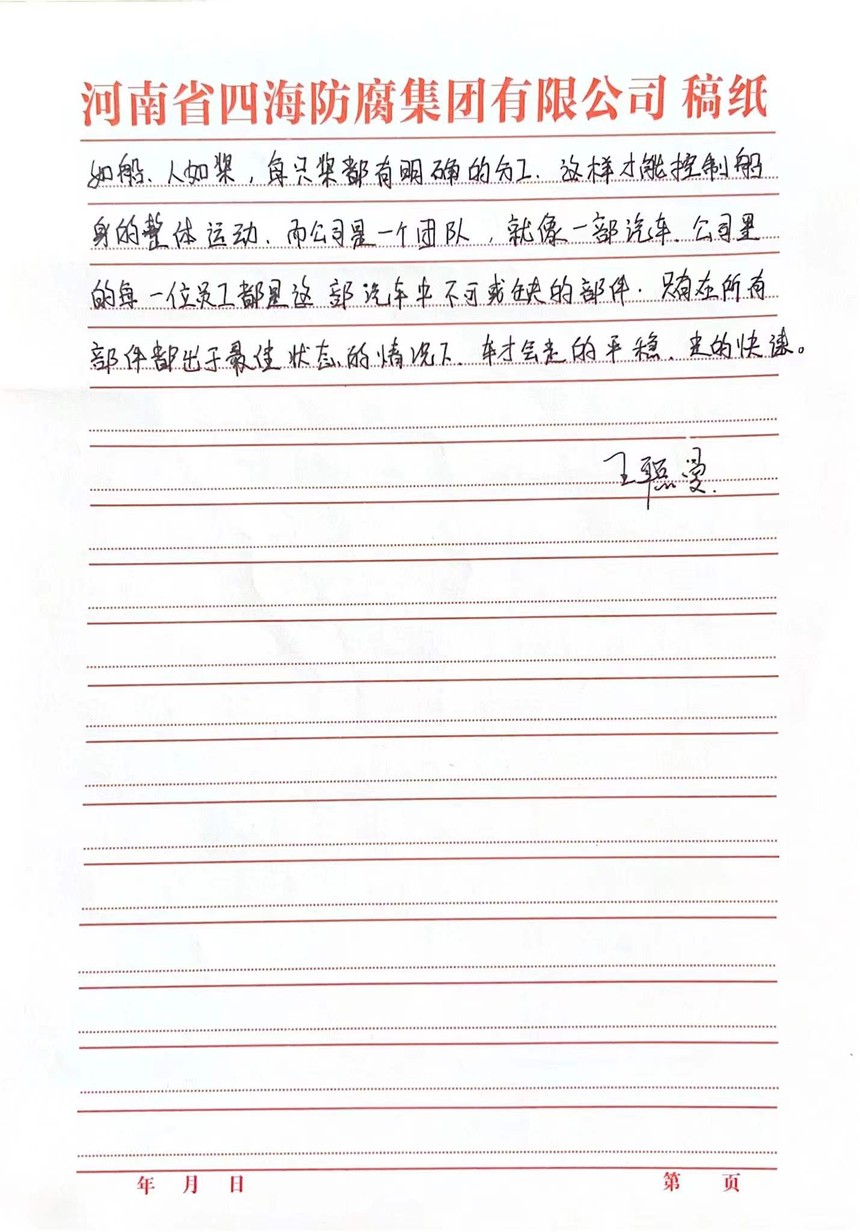 河南省四海防腐集团有限公司 稿纸
如船、人如桨,每只桨都有明确的分工、这样才能控制船
身的整体运动、而公司是一个团队,就像一部汽车、公司里
的每一位员工都是这部汽车中不可或缺的部件.只有在所有
部件都出于最佳状态的情况下、车才会走的平稳、走的快速。
王 曼
年 月 日
第 页